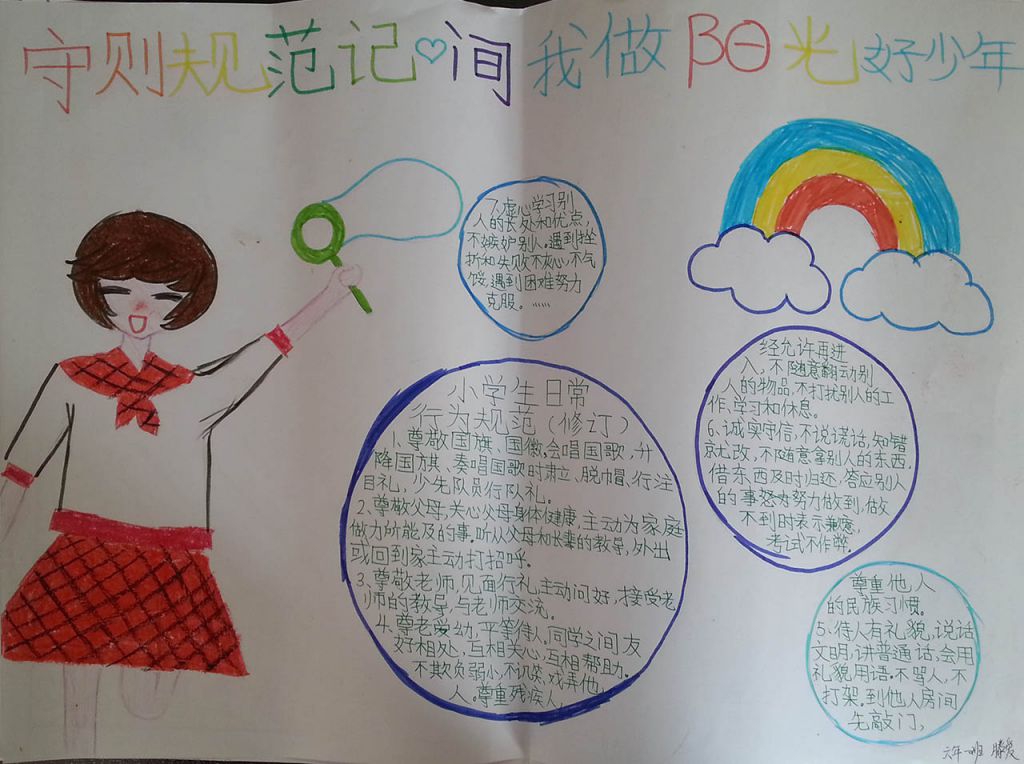 守则规范记♡间 我做阳光好少年
小学生日常
行为规范(修订)
1.尊敬国旗、国徽,会唱国歌,升
降国旗、奏唱国歌时肃立、脱帽、行注
目礼,少先队员行队礼。
2.尊敬父母,关心父母身体健康,主动为家庭
做力所能及的事。听从父母和长辈的教导,外出
或回到家主动打招呼。
3.尊敬老师,见面行礼,主动问好,接受老
师的教导,与老师交流。
4.尊老爱幼,平等待人,同学之间友
好相处,互相关心,互相帮助。
不欺负弱小,不讥笑、戏弄他
人。尊重残疾人,
尊重他人
的民族习惯。
5.待人有礼貌,说话
文明,讲普通话,会用
礼貌用语。不骂人,不
打架。到他人房间
先敲门,
经允许再进
入,不随意翻动别
人的物品,不打扰别人的工
作、学习和休息。
6.诚实守信,不说谎话,知错
就改,不随意拿别人的东西,
借东西及时归还,答应别人
的事努力做到,做
不到时表示兼意,
考试不作弊.
7.虚心学习别
人的长处和优点,
不嫉妒别人。遇到挫
折和失败不灰心,不气
馁,遇到困难努力
克服。……
六年一班 滕爱